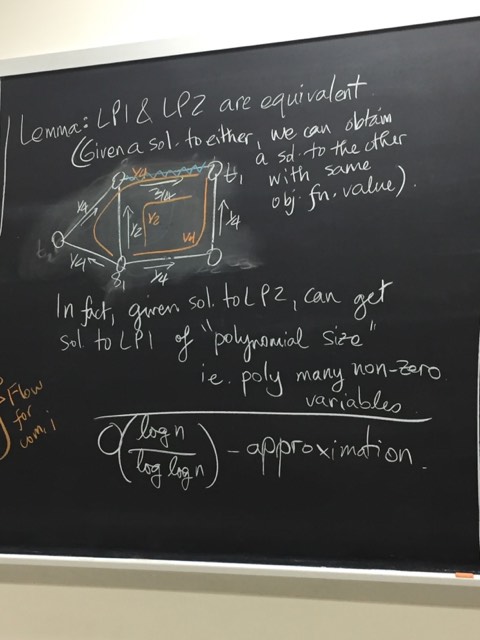 Lemma: LP1 & LP2 are equivalent.
(Given a sol. to either, we can obtain
a sol. to the other
with same
obj. fn. value).
1/4
t1
3/4
1/4
1/2
1/2
1/4
1/4
1/4
s1
1/4
In fact, given sol. to LP2, can get
sol. to LP1 of "polynomial size"
i.e. poly many non-zero
variables.
Flow
for
com. i
O(log n / log log n) - approximation.